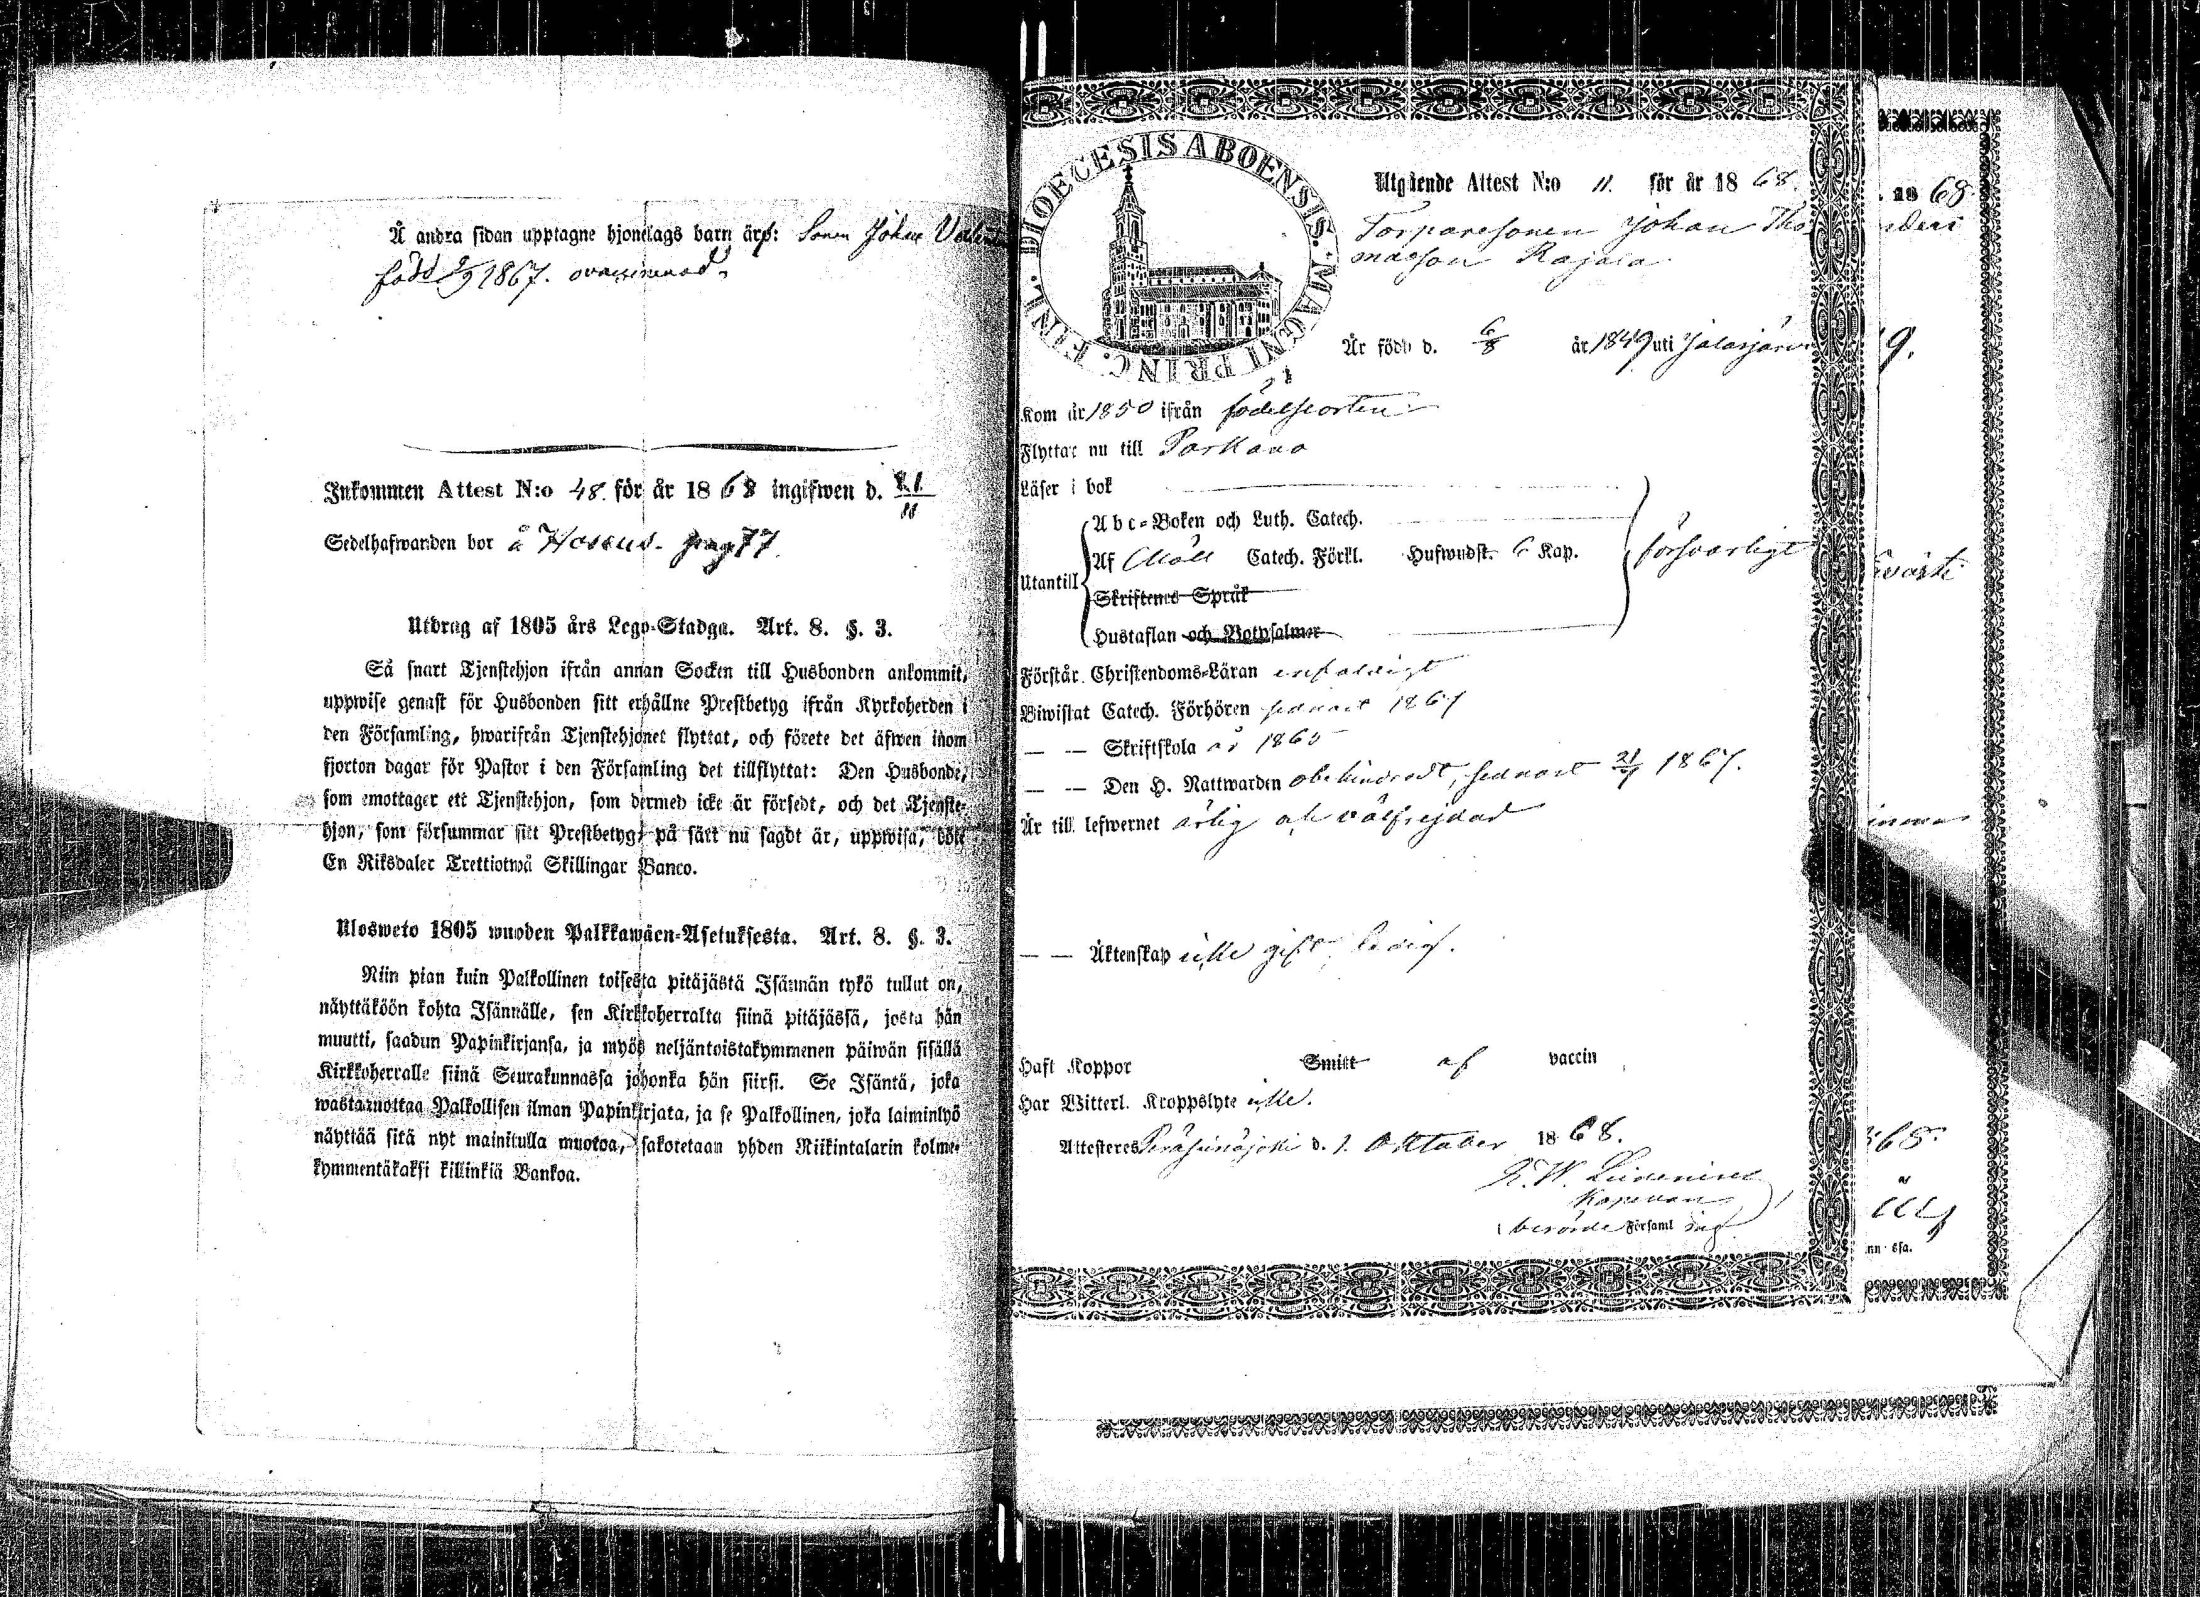 Å andra sidan upptagne hjonelags barn äro: Sonen Johan
född 2/9 1867. ovaccinerad.
Inkommen Attest N:o 48. för år 1868 ingifwen d. 21/11
Sedelhafwanden bor å pag 77.
Utdrag af 1805 års Lego-Stadga. Art. 8. §. 3.
Så snart Tjenstehjon ifrån annan Socken till Husbonden ankommit,
uppwise genast för Husbonden sitt erhållne Prestbetyg ifrån Kyrkoherden i
den Församling, hwarifrån Tjenstehjonet flyttat, och förete det äfwen inom
fjorton dagar för Pastor i den Församling det tillflyttat: Den Husbonde,
som emottager ett Tjenstehjon, som dermed icke är försedt, och det Tjenste-
hjon, som försummar sitt Prestbetyg, på sätt nu sagdt är, uppwisa, böte
En Riksdaler Trettiotwå Skillingar Banco.
Ulosweto 1805 wuoden Palkkawäen-Asetuksesta. Art. 8. §. 3.
Niin pian kuin Palkollinen toisesta pitäjästä Isännän tykö tullut on,
näyttäköön kohta Isännälle, sen Kirkkoherralta siinä pitäjässä, josta hän
muutti, saadun Papinkirjansa, ja myös neljäntoistakymmenen päiwän sisällä
Kirkkoherralle siinä Seurakunnassa johonka hän siirsi. Se Isäntä, joka
wastaanottaa Palkollisen ilman Papinkirjata, ja se Palkollinen, joka laiminlyö
näyttää sitä nyt mainitulla muotoa, sakotetaan yhden Riikintalarin kolme-
kymmentäkaksi killinkiä Bankoa.
DIOECESIS ABOENSIS. MAGNI PRINC. FINL.
Utgående Attest N:o 11. för år 1868.
Torparesonen Johan Tho
masson Rajala.
Är född d. 6/8 år 1849 uti Jalasjärvi
Kom år 1850 ifrån födelseorten
Flyttar nu till Parkano
Läser i bok
Abc-Boken och Luth. Catech.
Af Möll Catech. Förkl. Hufwudst. 6 Kap. försvarligt
Utantill
Skriftenes Språk
Hustaflan och Botpsalmer
Förstår Christendoms-Läran enfaldigt
Biwistat Catech. Förhören sednast 1867
— — Skriftskola år 1865
— — Den H. Nattwarden obehindradt, sednast 21/7 1867.
Är till lefwernet ärlig och välfrejdad
— — Äktenskap icke gift, ledig.
Haft Koppor Smitt af vaccin
Har Witterl. Kroppslyte icke.
Attesteres Peräseinäjoki d. 1. Oktober 1868.
Kapellan
i berörde Församling
1868
9.